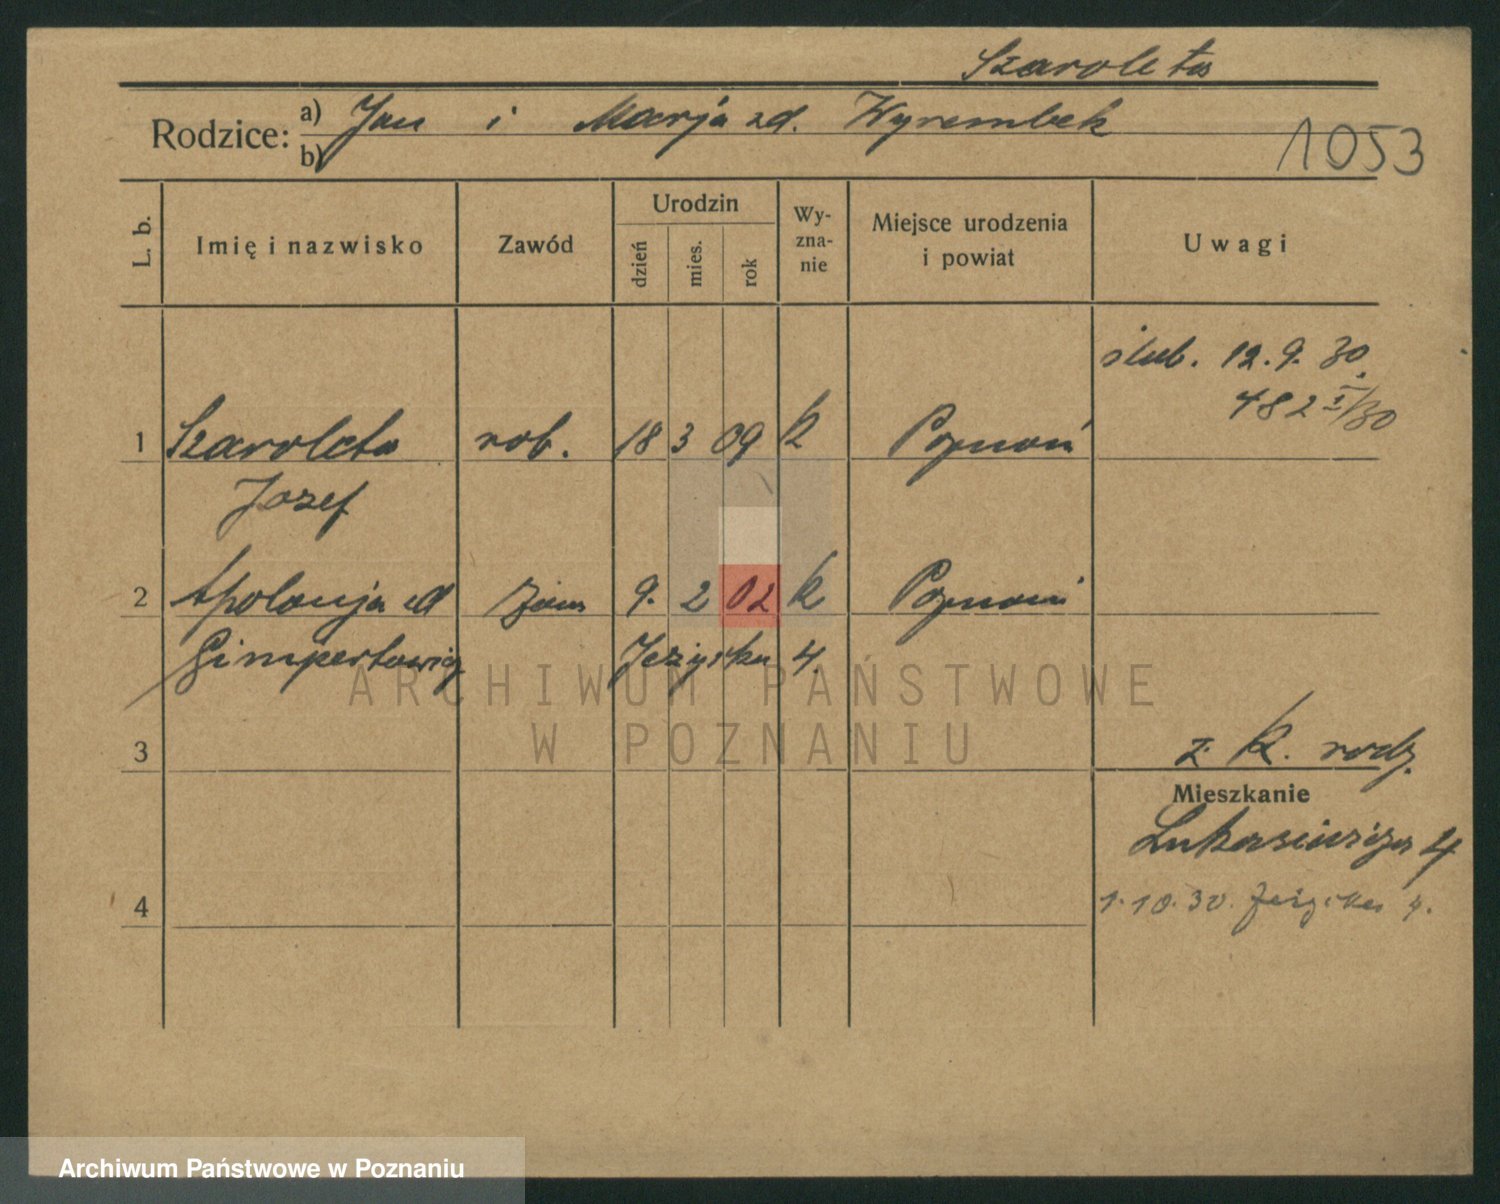 Szaroleta
Rodzice: a) Jan i Marja zd. Wyrembek
b)
1053
L. b.
Imię i nazwisko
Zawód
Urodzin
dzień
mies.
rok
Wy-
zna-
nie
Miejsce urodzenia
i powiat
Uwagi
ślub. 12. 9. 30.
482 I/30
1 Szaroleta rob. 18 3 09 k Poznań
Józef
2 Apolonja zd żona 9. 2 02 k Poznań
Gimpertowicz Jeżycka 4.
ARCHIWUM PAŃSTWOWE
W POZNANIU
3
z k. rodz.
Mieszkanie
Łukasiewicza 4
4
1. 10. 30. Jeżycka 4.
Archiwum Państwowe w Poznaniu